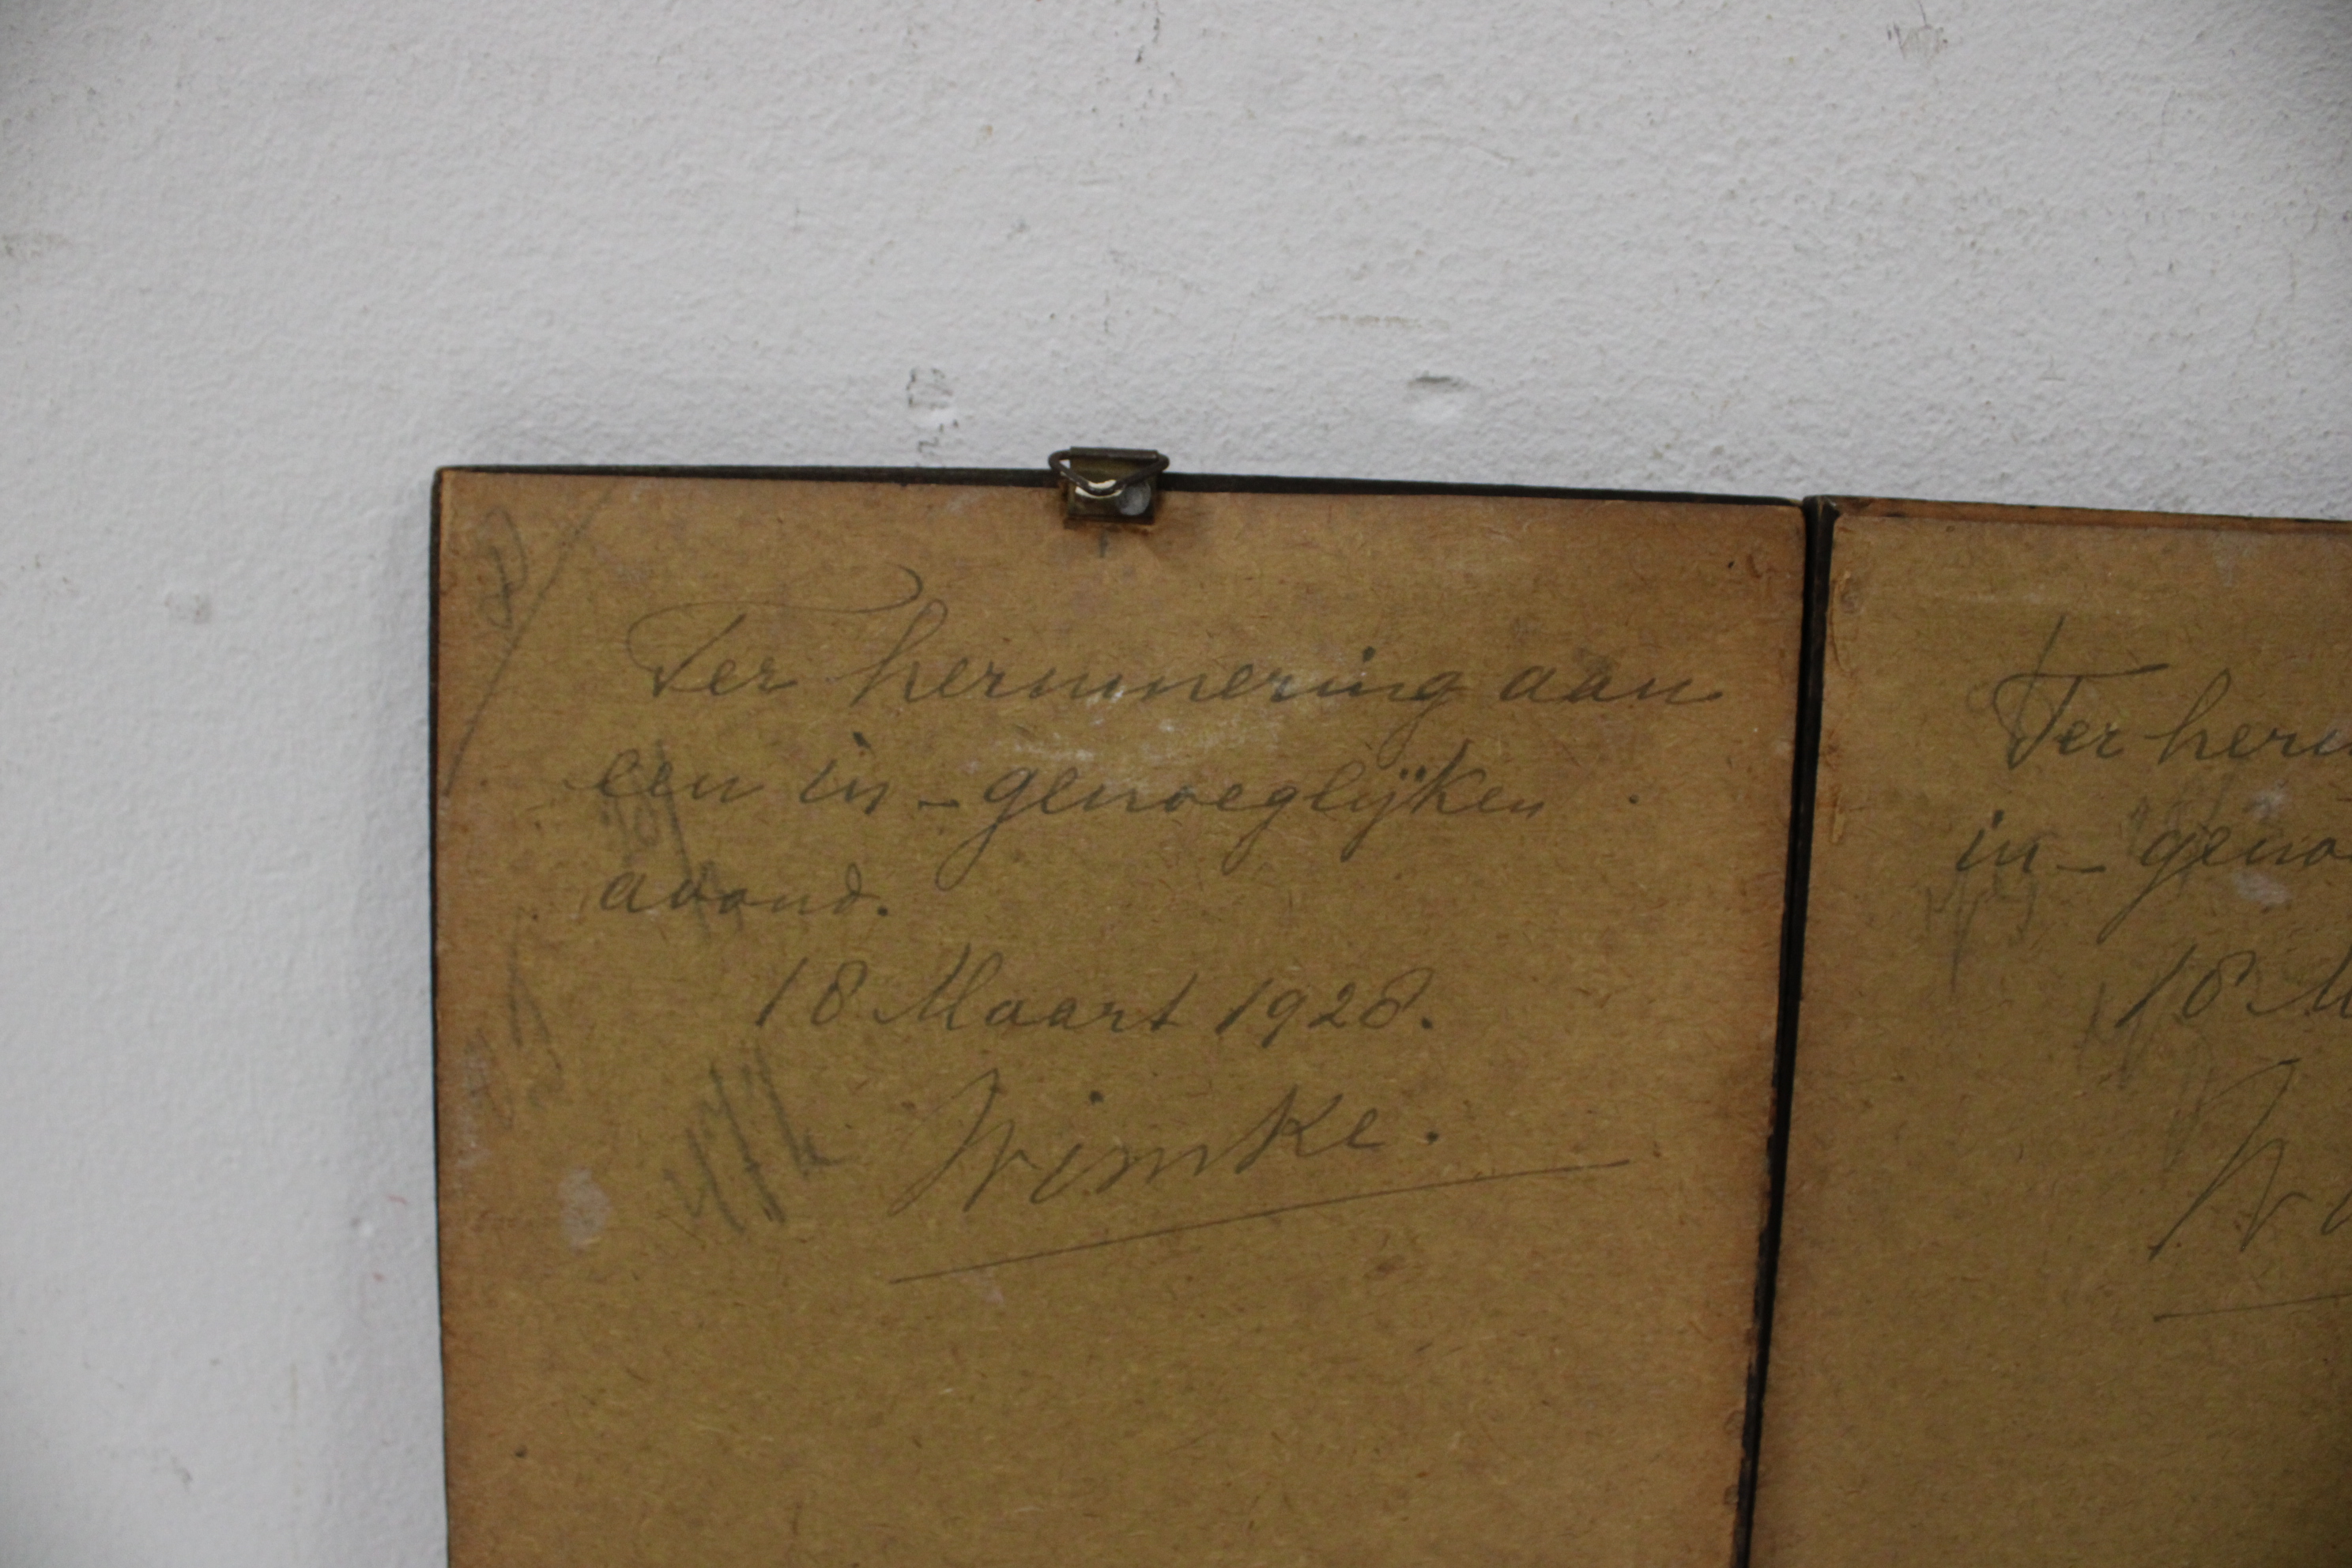 Ter herinnering aan
een in-genoeglijken
avond.
18 Maart 1928.
Wimke.
Ter
in-
18